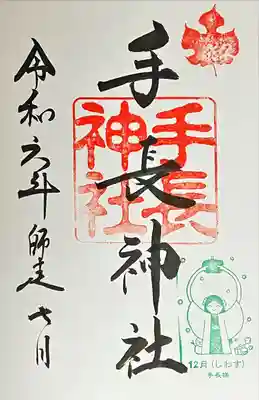 手長神社
手長
神社
令和六年師走七日
12月(しわす)
手長様